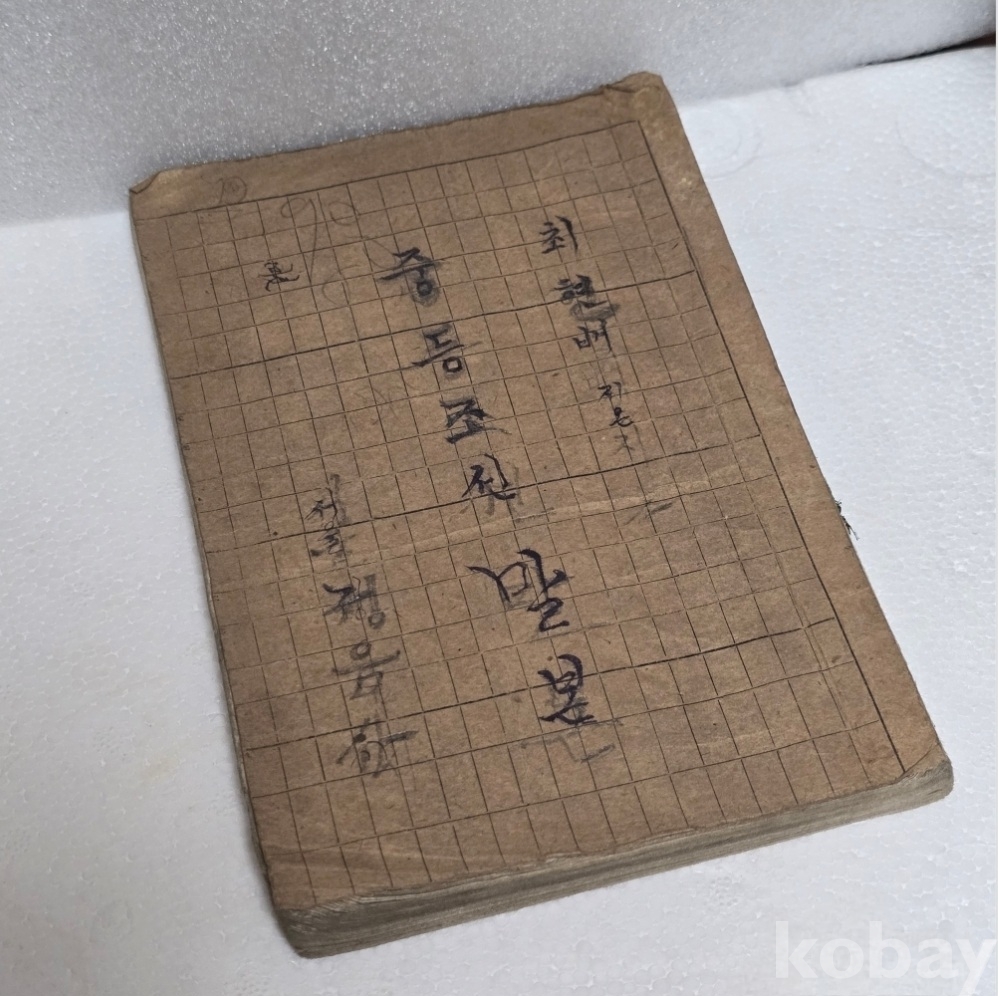 최현배 지은
중등조선말본
정음사
kobay